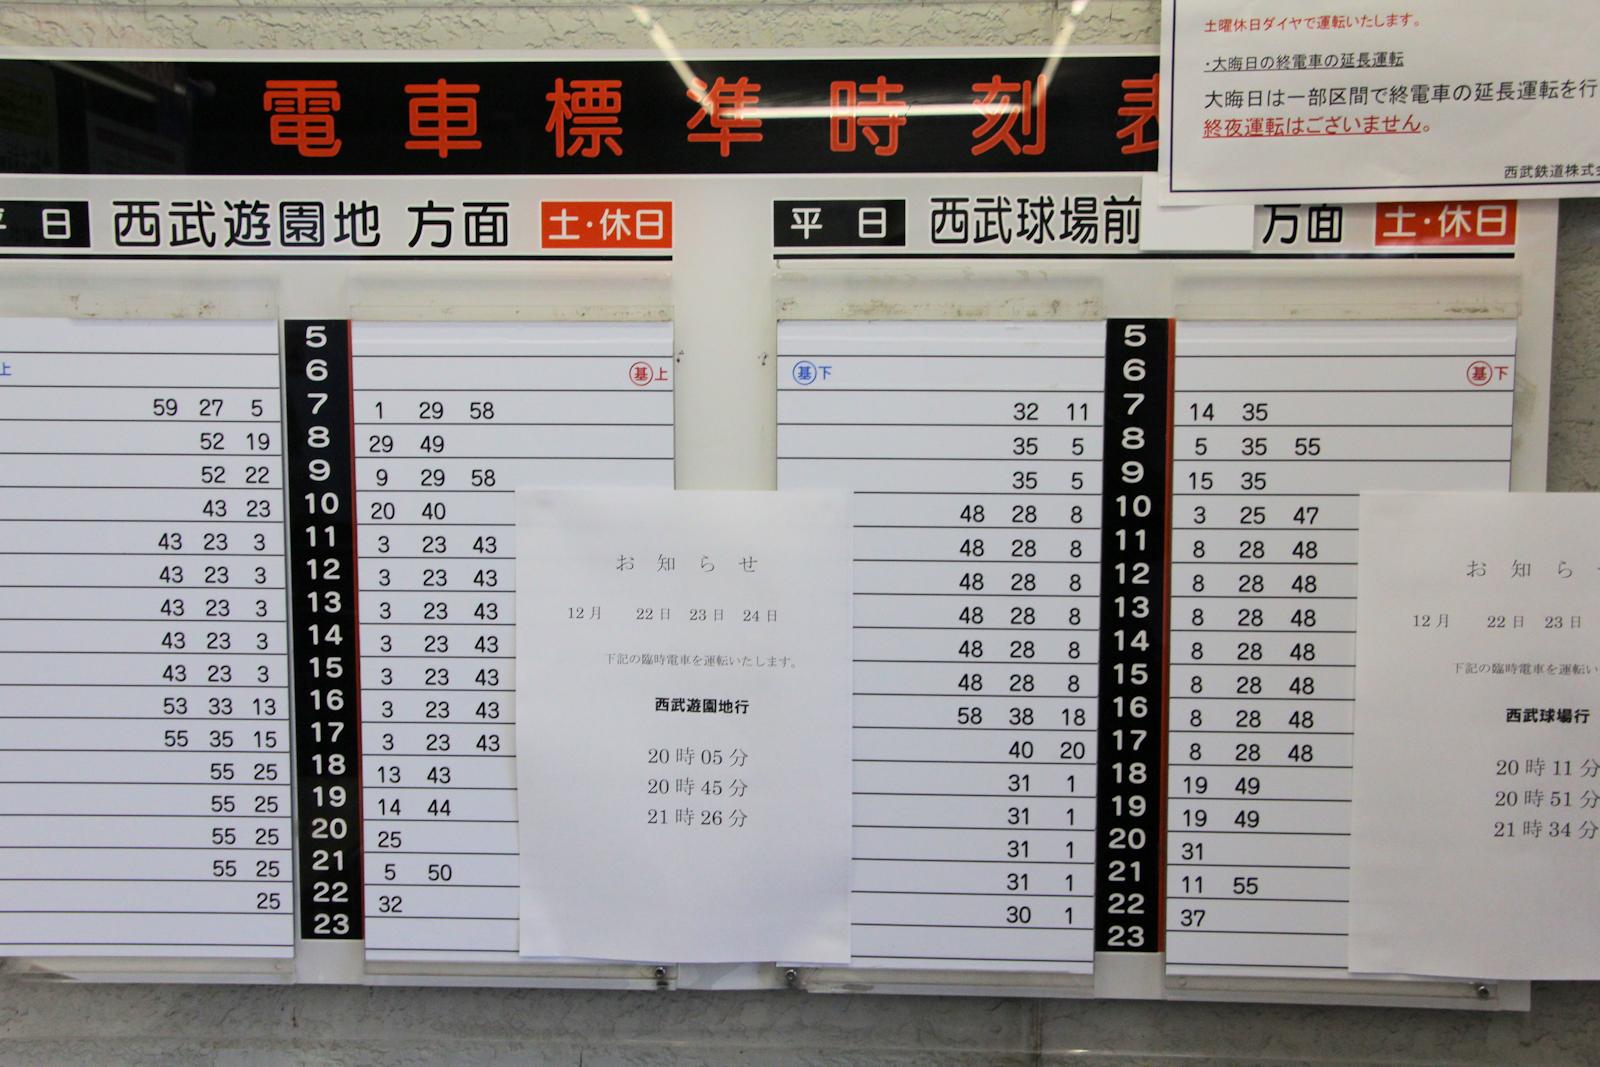 土曜休日ダイヤで運転いたします。
・大晦日の終電車の延長運転
大晦日は一部区間で終電車の延長運転を行
終夜運転はございません。
西武鉄道株式
電車標準時刻
日 西武遊園地 方面 土・休日
上
5
6 基上
59 27 5 7 1 29 58
52 19 8 29 49
52 22 9 9 29 58
43 23 10 20 40
43 23 3 11 3 23 43
43 23 3 12 3 23 43
43 23 3 13 3 23 43
43 23 3 14 3 23 43
43 23 3 15 3 23 43
53 33 13 16 3 23 43
55 35 15 17 3 23 43
55 25 18 13 43
55 25 19 14 44
55 25 20 25
55 25 21 5 50
25 22 32
23
お知らせ
12月 22日 23日 24日
下記の臨時電車を運転いたします。
西武遊園地行
20時05分
20時45分
21時26分
平日 西武球場前 方面 土・休日
5
基下 6 基下
32 11 7 14 35
35 5 8 5 35 55
35 5 9 15 35
48 28 8 10 3 25 47
48 28 8 11 8 28 48
48 28 8 12 8 28 48
48 28 8 13 8 28 48
48 28 8 14 8 28 48
48 28 8 15 8 28 48
58 38 18 16 8 28 48
40 20 17 8 28 48
31 1 18 19 49
31 1 19 19 49
31 1 20 31
31 1 21 11 55
30 1 22 37
23
お知ら
12月 22日 23日
下記の臨時電車を運転い
西武球場行
20時11分
20時51分
21時34分